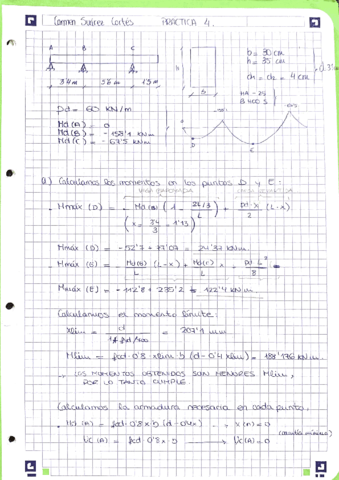 Carmen Suárez Cortés PRACTICA 4.
A B C
b = 30 cm
h = 35 cm
d1 = d2 = 4 cm
HA-25
B 400 S
3'4 m 5'6 m 1'5 m
b
Pd = 60 KN/m
Md(A) = 0
Md(B) = -158'1 KNm
Md(C) = -67'5 KNm
D E
a) Calculamos los momentos en los puntos D y E:
Mmáx (D) =
(x = 3'4/3 = 1'13)
Mmáx (D) = -52'7 + 77'07 = 24'37 KNm.
Mmáx (E) = Md(B)/L (L-x) + Md(C)/L x - Pd L²/8 =
Mmáx (E) = -112'8 + 235'2 = 122'4 KNm.
Calculamos el momento límite.
Xlim = = 207'9 mm
Mlim = fcd · 0'8 xlim b (d - 0'4 xlim) = 188'176 KNm.
→ LOS MOMENTOS OBTENIDOS SON MENORES Mlim,
POR LO TANTO CUMPLE.
Calculamos la armadura necesaria en cada punto.
Md (A) = fcd · 0'8 x b (d - 0'4x) → x (A) = 0
(cuantía mínima)
Uc (A) = fcd · 0'8 x · b → Uc (A) = 0